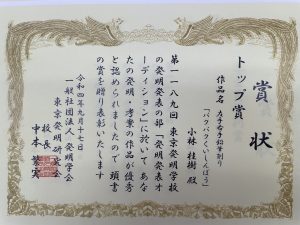 賞状
トップ賞
作品名 左手右手鉛筆削り
「パクパクくいしんぼう」
小林 桂樹 殿
第一一八九回 東京発明学校
の発明発表の部「発明発表オ
ーディション」に於いて あな
たの発明・考案の作品が優秀
と認められましたので 頭書
の賞を贈り表彰いたします
令和四年九月十七日
一般社団法人発明学会
東京発明研究会
校長
中本 繁実